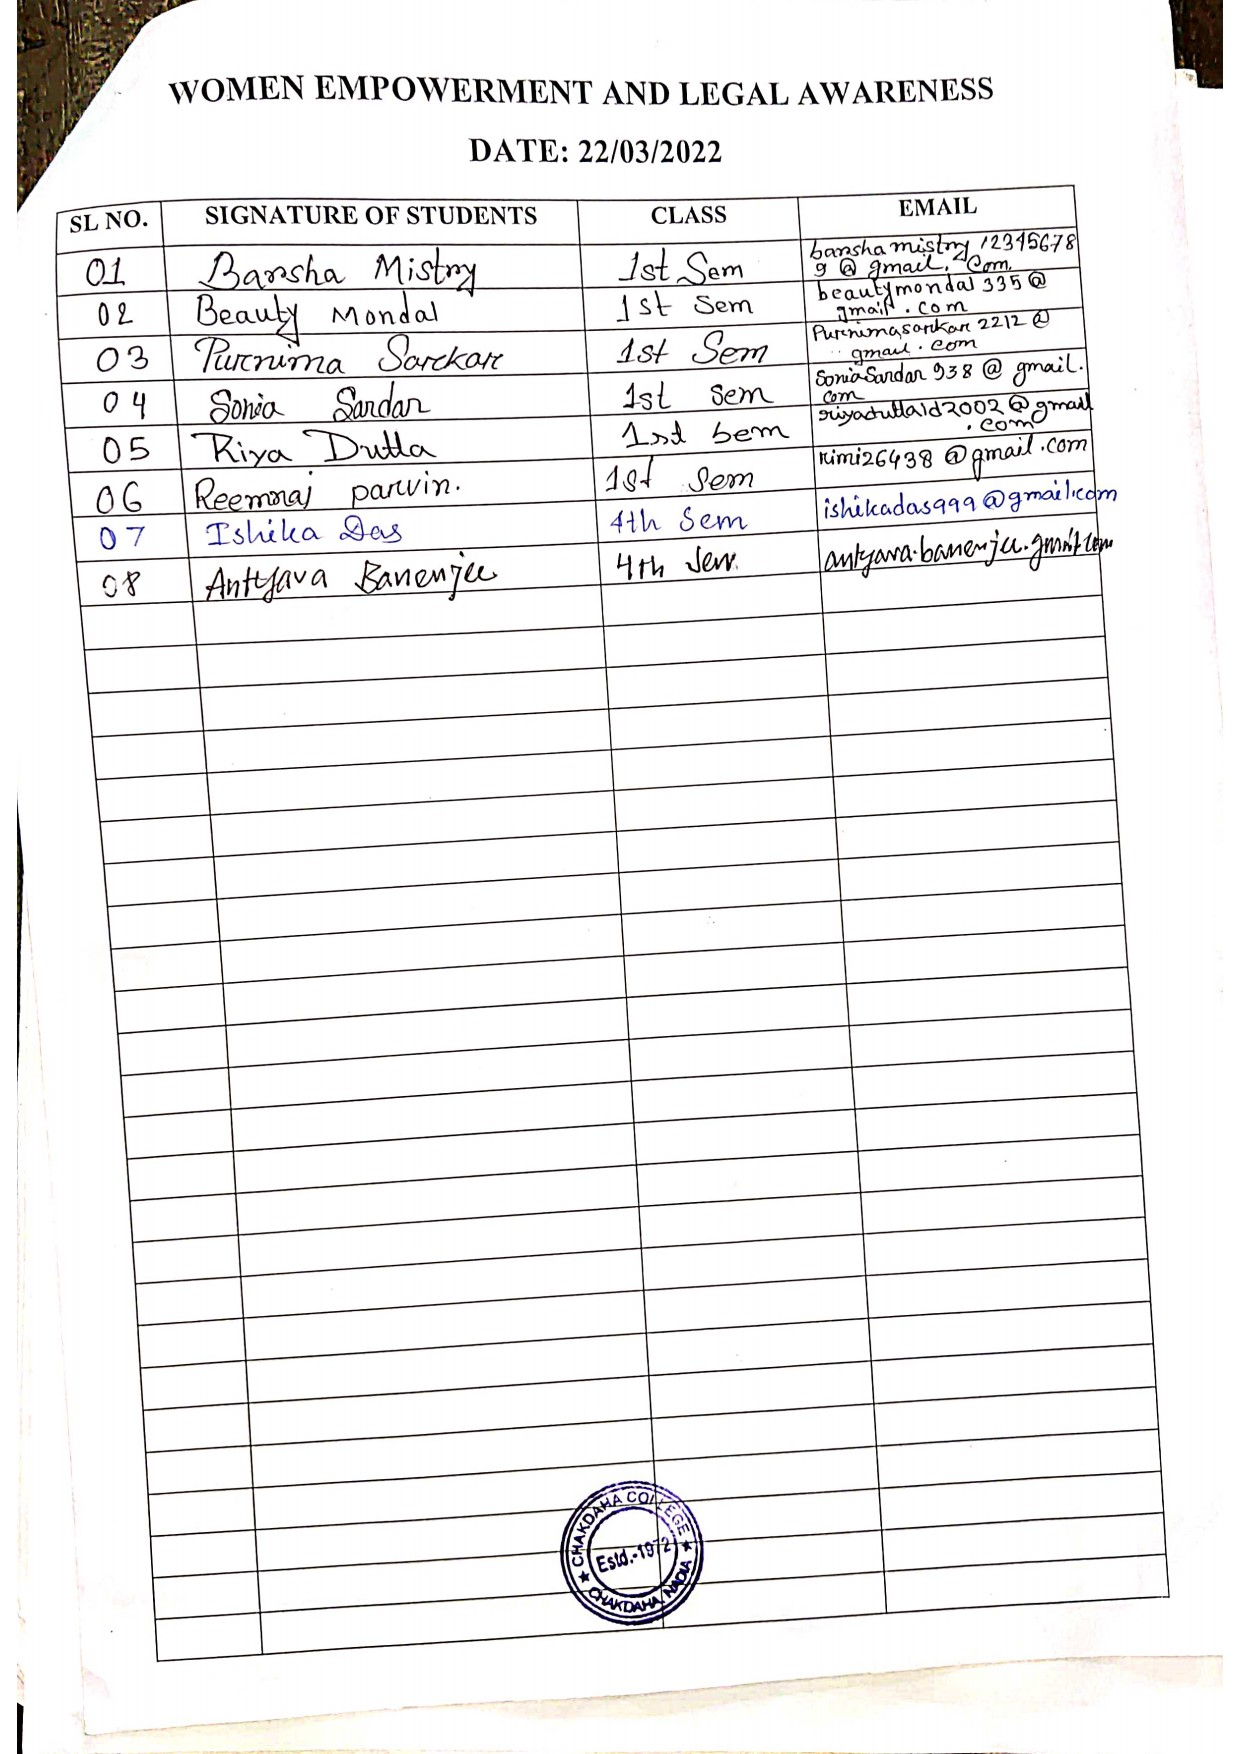 WOMEN EMPOWERMENT AND LEGAL AWARENESS
DATE: 22/03/2022
SL NO. SIGNATURE OF STUDENTS CLASS EMAIL
01 Barsha Mistry 1st Sem barshamistry12345678
9@gmail.com
02 Beauty Mondal 1st Sem beautymondal335@
gmail.com
03 Purnima Sarkar 1st Sem Purnimasarkar2212@
gmail.com
04 Sonia Sardar 1st Sem SoniaSardar938@gmail.
com
05 Riya Dutta 1st Sem @gmail
.com
06 Reemraj parvin. 1st Sem rimi26438@gmail.com
07 Ishika Das 4th Sem ishikadas999@gmail.com
08 Antyava Banerjee 4th Sem antyava.banerjee.gmail.com
CHAKDAHA COLLEGE
Estd.-1972
CHAKDAHA, NADIA